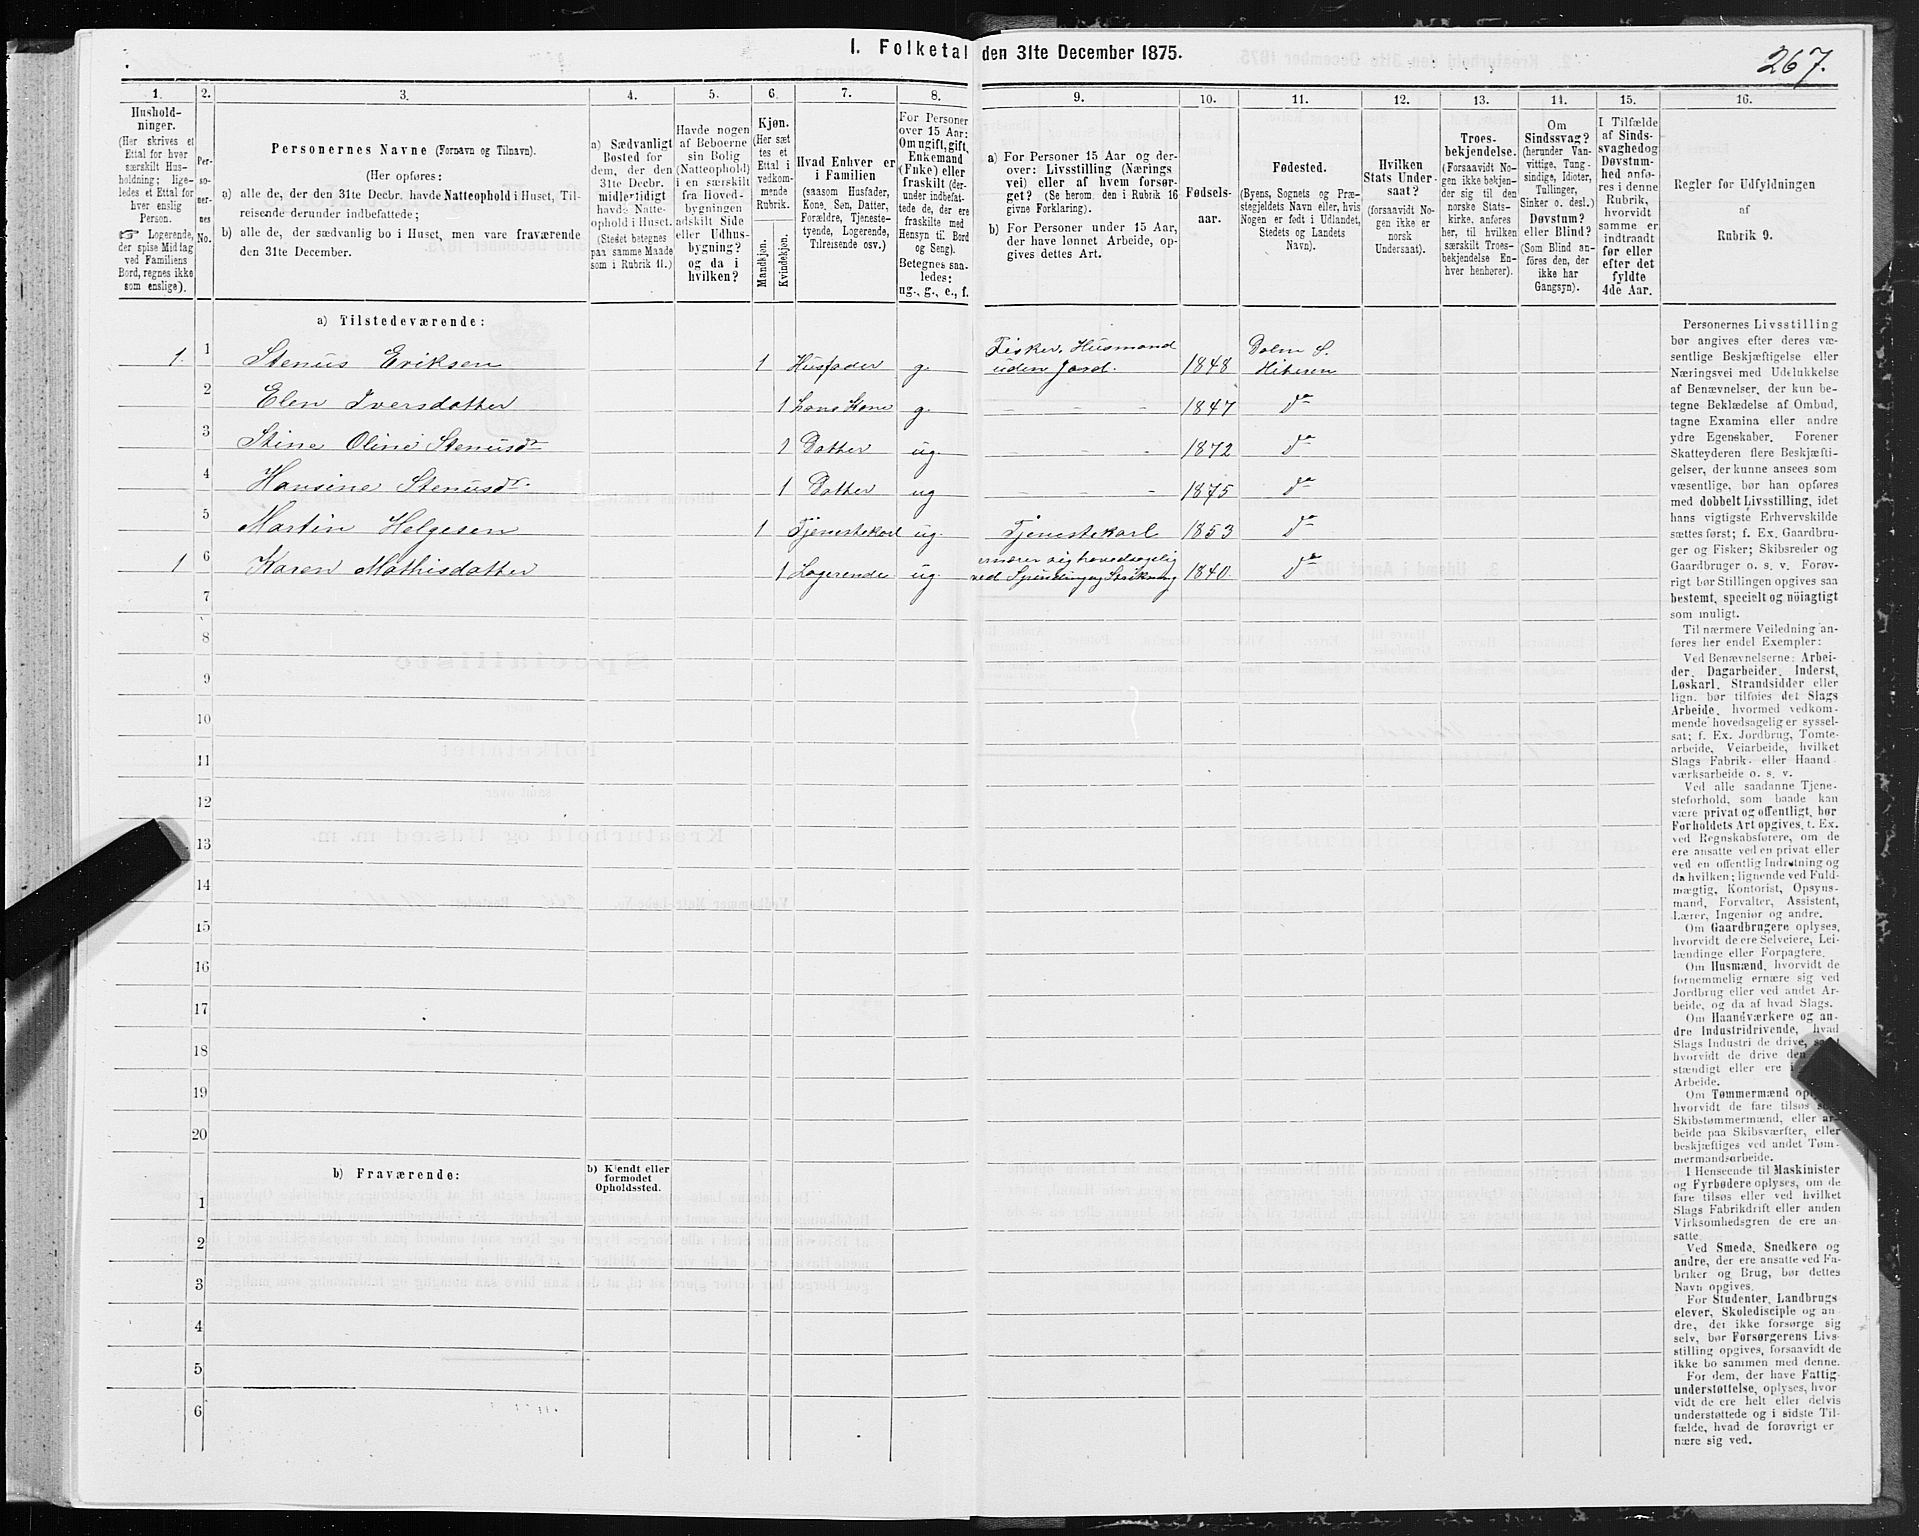 1. Folketal den 31te December 1875.
267.
1. 2. 3. 4. 5. 6. 7. 8. 9. 10. 11. 12. 13. 14. 15. 16.
Hushold-
ninger.
(Her skrives et
Ettal for hver
særskilt Hus-
holdning; lige-
ledes et Ettal for
hver enslig
Person.
☞ Logerende,
der spise Middag
ved Familiens
Bord, regnes ikke
som enslige).
Per-
so-
ner-
nes
No.
Personernes Navne (Fornavn og Tilnavn).
(Her opføres:
a) alle de, der den 31te Decbr. havde Natteophold i Huset, Til-
reisende derunder indbefattede;
b) alle de, der sædvanlig bo i Huset, men vare fraværende
den 31te December.
a) Sædvanligt
Bosted for
dem, der den
31te Decbr.
midlertidigt
havde Natte-
ophold i Huset.
(Stedet betegnes
paa samme Maade
som i Rubrik 11.)
Havde nogen
af Beboerne
sin Bolig
(Natteophold)
i en særskilt
fra Hoved-
bygningen
adskilt Side
eller Udhus-
bygning?
og da i
hvilken?
Kjøn.
(Her sæt
tes et
Ettal i
vedkom-
mende
Rubrik.
Mandkjøn.
Kvindekjøn.
Hvad Enhver er
i Familien
(saasom Husfader,
Kone, Søn, Datter,
Forældre, Tjeneste-
tyende, Logerende,
Tilreisende osv.)
For Personer
over 15 Aar:
Om ugift, gift,
Enkemand
(Enke) eller
fraskilt (der-
under indbefat-
tede de, der ere
fraskilte med
Hensyn til Bord
og Seng).
Betegnes saa-
ledes:
ug., g., e., f.
a) For Personer 15 Aar og der-
over: Livsstilling (Nærings
vei) eller af hvem forsør-
get? (Se herom den i Rubrik 16
givne Forklaring).
b) For Personer under 15 Aar,
der have lønnet Arbeide, op-
gives dettes Art.
Fødsels-
aar.
Fødested.
(Byens, Sognets og Præ-
stegjeldets Navn eller, hvis
Nogen er født i Udlandet,
Stedets og Landets
Navn).
Hvilken
Stats Under-
saat?
(forsaavidt No-
gen ikke er
norsk
Undersaat).
Troes-
bekjendelse.
(Forsaavidt No-
gen ikke bekjen-
der sig til den
norske Stats-
kirke, anføres
her, til hvilken
særskilt Troes-
bekjendelse En-
hver henhører).
Om
Sindssvag?
(herunder Van-
vittige, Tung-
sindige, Idioter,
Tullinger,
Sinker o. desl.)
Døvstum?
eller Blind?
(Som Blind an-
føres den, der
ikke har
Gangsyn).
I Tilfælde
af Sinds-
svaghedog
Døvstum-
hed anfø-
res i denne
Rubrik,
hvorvidt
samme er
indtraadt
før eller
efter det
fyldte
4de Aar.
Regler for Udfyldningen
af
Rubrik 9.
a) Tilstedeværende:
1. 1 Stenus Eriksen 1 Husfader g. Fisker, Husmand uden Jord. 1848 Dolm S. Hiteren
2 Elen Iversdatter 1 hans Kone g. - - - 1847 do
3 Stine Oline Stenusdr 1 Datter ug. - - - 1872 do
4 Hansine Stenusdr. 1 Datter ug - - - 1875 do
5 Martin Helgesen 1 Tjenestekarl ug. Tjenestekarl 1853 do
1 6 Karen Mathisdatter 1 Logerende ug. ernærer sig hovedsagelig ved Spinding og Strikning 1840. do
7
8
9
10
11
12
13
14
15
16
17
18
19
20
b) Fraværende:
b) Kjendt eller
formodet
Opholdssted.
1
2
3
4
5
6
Personernes Livsstilling
bør angives efter deres væ-
sentlige Beskjæftigelse eller
Næringsvei med Udelukkelse
af Benævnelser, der kun be-
tegne Beklædelse af Ombud,
tagne Examina eller andre
ydre Egenskaber. Forener
Skatteyderen flere Beskjæfti-
gelser, der kunne ansees som
væsentlige, bør han opføres
med dobbelt Livsstilling, idet
hans vigtigste Erhvervskilde
sættes først; f. Ex. Gaardbru-
ger og Fisker; Skibsreder og
Gaardbruger o. s. v. Forøv-
rigt bør Stillingen opgives saa
bestemt, specielt og nöiagtigt
som muligt.
Til nærmere Veiledning an-
føres her endel Exempler:
Ved Benævnelserne: Arbei-
der, Dagarbeider, Inderst,
Løskarl, Strandsidder eller
lign. bør tilføies det Slags
Arbeide, hvormed vedkom-
mende hovedsagelig er syssel-
sat; f. Ex. Jordbrug, Tomte-
arbeide, Veiarbeide, hvilket
Slags Fabrik- eller Haand
værksarbeide o. s. v.
Ved alle saadanne Tjene-
steforhold, som baade kan
være privat og offentligt, bør
Forholdets Art opgives, t. Ex.
ved Regnskabsførere, om de
ere ansatte ved en privat eller
ved en offentlig Indretning og
da hvilken; lignende ved Fuld-
mægtig, Kontorist, Opsyns-
mand, Forvalter, Assistent,
Lærer, Ingeniør og andre.
Om Gaardbrugere oplyses,
hvorvidt de ere Selveiere, Lei-
lændinge eller Forpagtere.
Om Husmænd, hvorvidt de
fornemmelig ernære sig ved
Jordbrug eller ved andet Ar-
beide, og da af hvad Slags.
Om Haandværkere og an-
dre Industridrivende, hvad
Slags Industri de drive,
hvorvidt de drive den
stændigt eller ere i
Arbeide.
Om Tømmermænd
hvorvidt de fare tilsøs
Skibstømmermænd, eller ar-
beide paa Skibsværfter, eller
beskjæftiges ved andet Tøm-
mermandsarbeide.
I Henseende til Maskinister
og Fyrbødere oplyses, om de
fare tilsøs eller ved hvilket
Slags Fabrikdrift eller anden
Virksomhedsgren de ere an-
satte.
Ved Smede, Snedkere og
andre, der ere ansatte ved Fa-
briker og Brug, bør dettes
Navn opgives.
For Studenter, Landbrugs
elever, Skoledisciple og an
dre, der ikke forsørge sig
selv, bør Forsørgerens Livs-
stilling opgives, forsaavidt de
ikke bo sammen med denne.
For dem, der have Fattig-
understøttelse, oplyses, hvor
vidt de ere helt eller delvis
understøttede og i sidste Til-
fælde, hvad de forøvrigt er
nære sig ved.